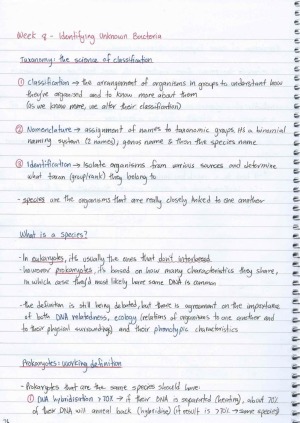 Week 9 - Identifying Unknown Bacteria
Taxonomy: the science of classification
① Classification → the arrangement of organisms in groups to understand how
they're organised and to know more about them
(as we know more, we alter their classification)
② Nomenclature → assignment of names to taxonomic groups. It's a binomial
naming system (2 names), genus name & then the species name
③ Identification → Isolate organisms from various sources and determine
what taxon (group/rank) they belong to
- species are the organisms that are really closely linked to one another
What is a Species?
- In eukaryotes, it's usually the ones that don't interbreed
- however prokaryotes, it's based on how many characteristics they share,
in which case they'd most likely have some DNA in common
- the definition is still being debated, but there is agreement on the importance
of both DNA relatedness, ecology (relations of organisms to one another and
to their physical surroundings) and their phenotypic characteristics
Prokaryotes: working definition
- Prokaryotes that are the same species should have:
① DNA hybridisation >70% → if their DNA is separated (heating), about 70%
of their DNA will anneal back (hybridise) (if result is >70% → same species)